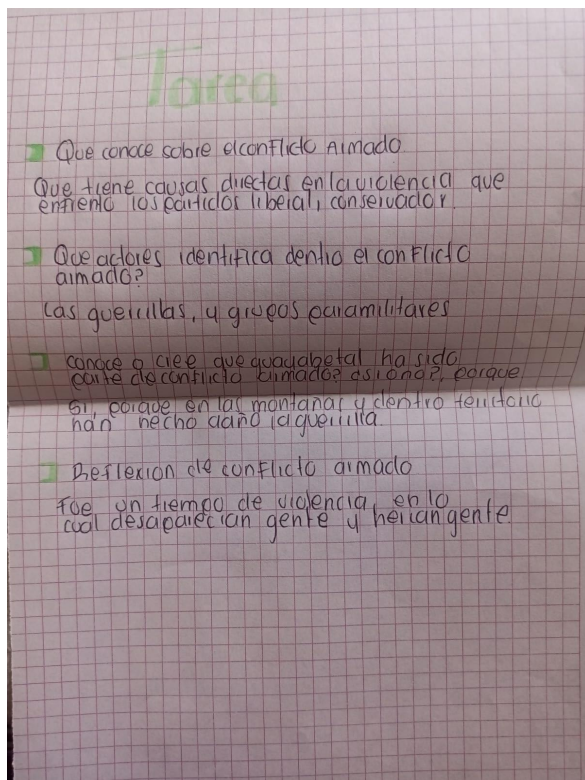 Tarea
Que conoce sobre elconflicto Armado
Que tiene causas directas en la violencia que
enfrento los partidos liberal, conservador.
Que actores identifica dentro el conflicto
armado?
Las guerrillas, y grupos paramilitares
conoce o cree que guayabetal ha sido
parte de conflicto armado? o si o no?, porque
si, porque en las montañas y dentro territorio
han hecho daño la guerrilla.
Reflexion de conflicto armado
Fue un tiempo de violencia, en lo
cual desaparecian gente y herian gente